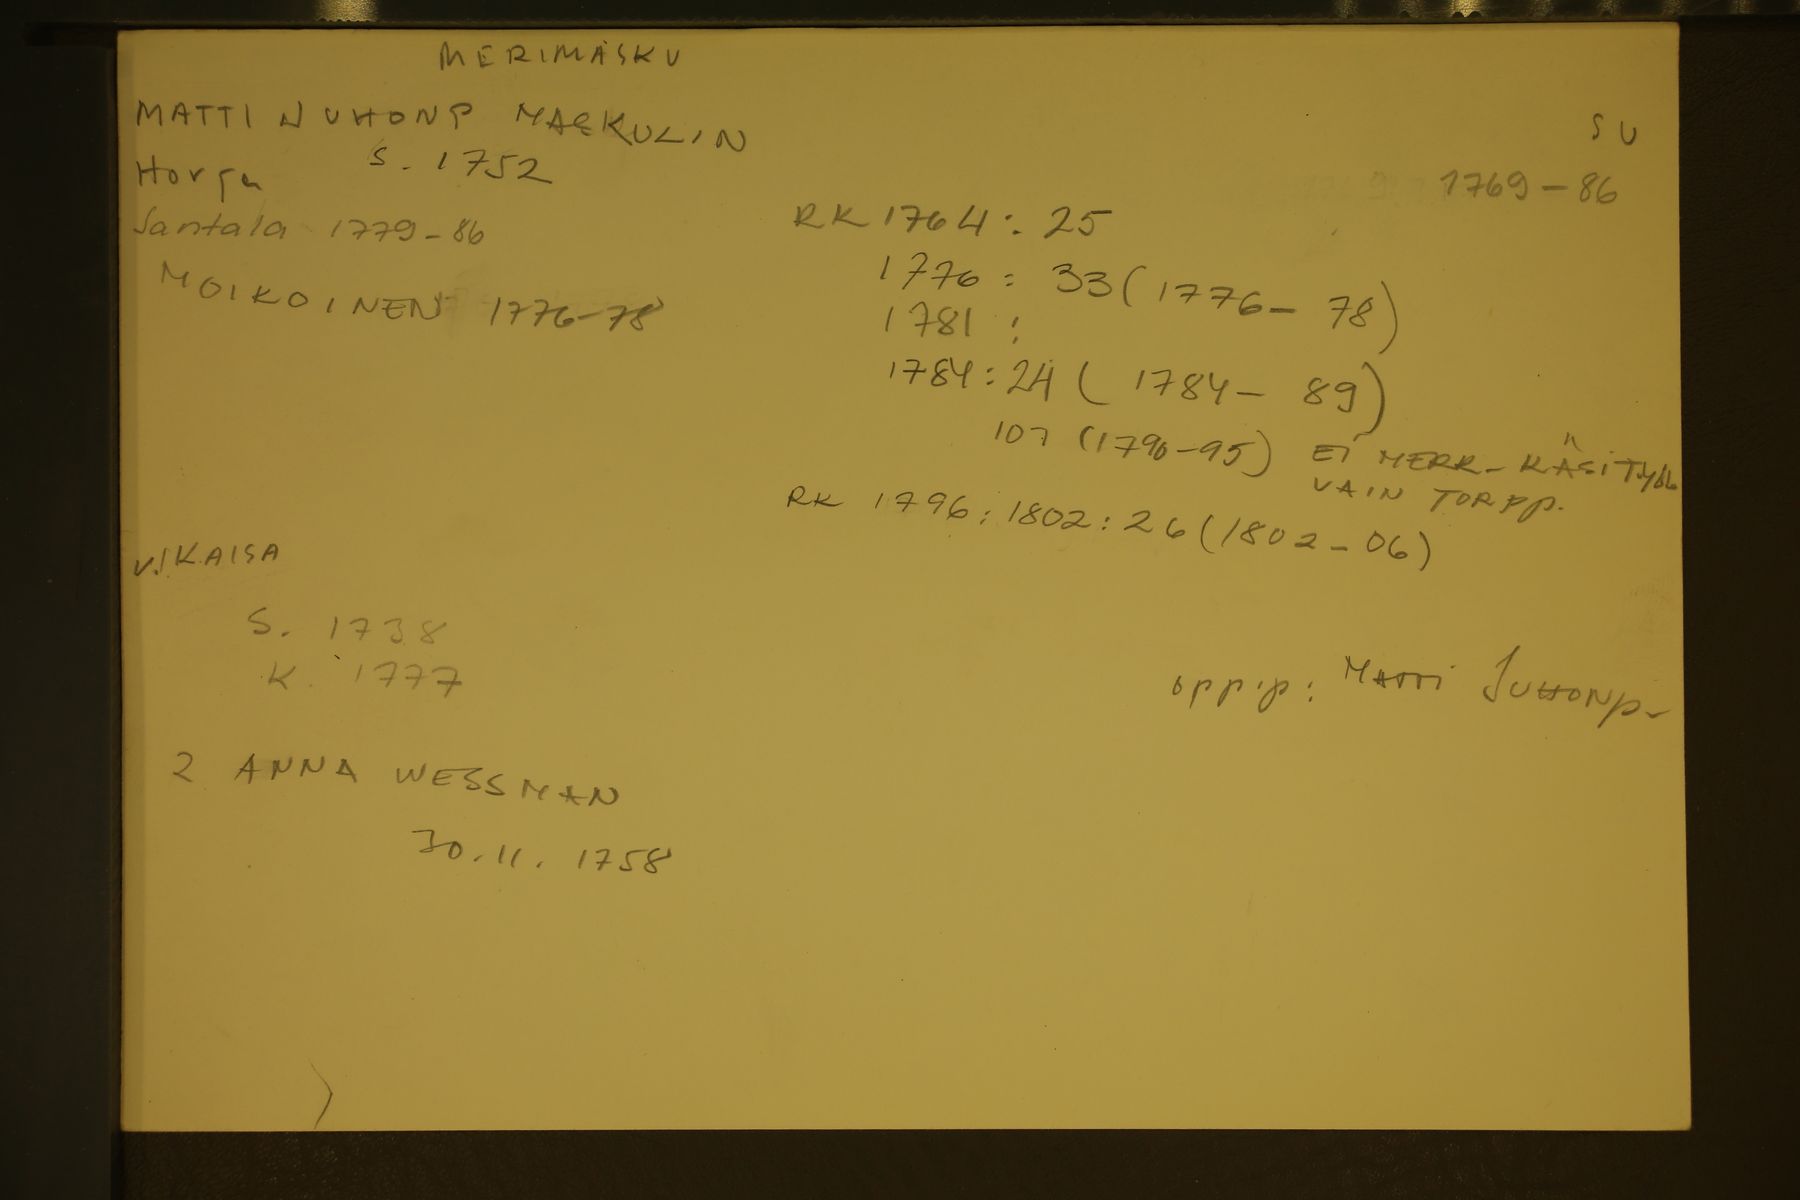 MERIMASKU
MATTI JUHONP MASKULIN
S. 1752
SU
1769-86
Santala 1779-86
MOIKOINEN 1776-78
RK 1764: 25
1776: 33 (1776-78)
1781:
1784: 24 (1784-89)
107 (1790-95) EI MERK-KÄSITYÖL
VAIN TORPP.
RK 1796: 1802: 26 (1802-06)
V. KAISA
S. 1738
K. 1777
oppip: MATTI JUHONP-
2 ANNA WESSMAN
30.11.1758